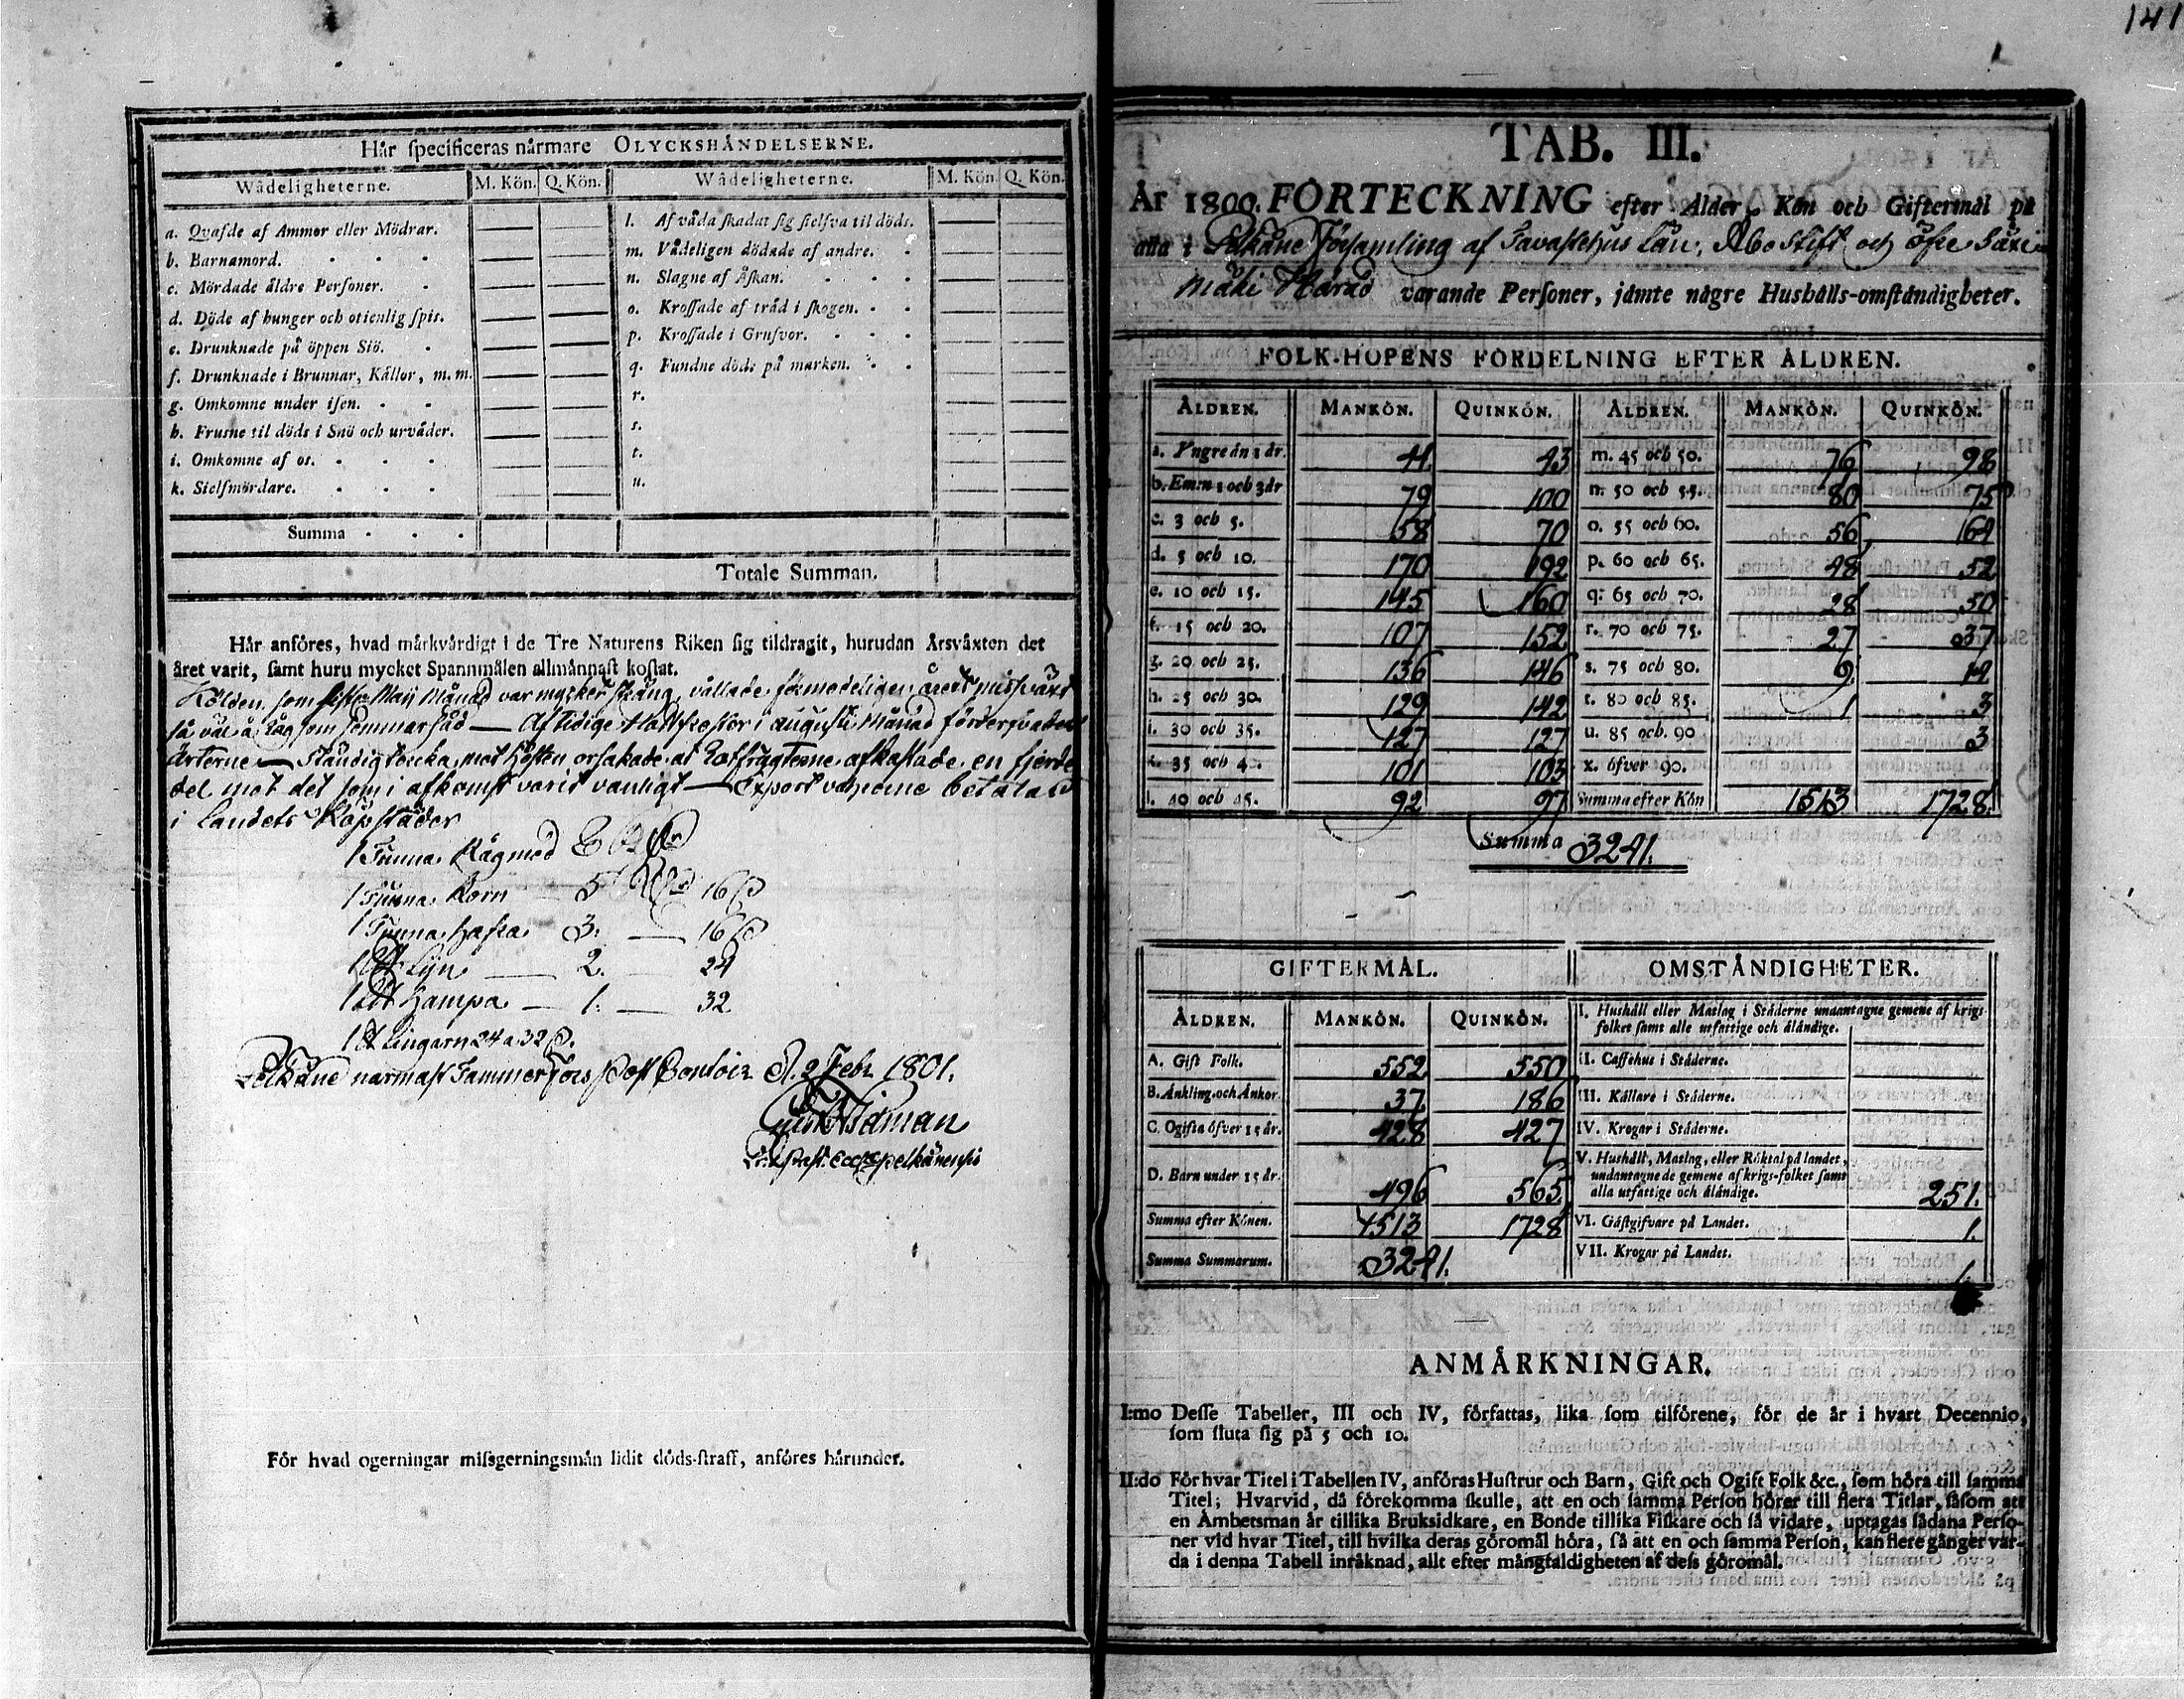 141
Här specificeras närmare OLYCKSHÄNDELSERNE.
Wådeligheterne. M. Kön. Q. Kön. Wådeligheterne. M. Kön. Q. Kön.
a. Qvafde af Ammor eller Mödrar. — —
b. Barnamord. — —
c. Mördade äldre Personer. — —
d. Döde af hunger och otienlig spis. — —
e. Drunknade på öppen Siö. — —
f. Drunknade i Brunnar, Källor, m. m. — —
g. Omkomne under isen. — —
h. Frusne til döds i Snö och urväder. — —
i. Omkomne af os. — —
k. Sielfmördare. — —
l. Af våda skadat sig sielfva til döds. — —
m. Vådeligen dödade af andre. — —
n. Slagne af Åskan. — —
o. Krossade af träd i skogen. — —
p. Krossade i Grufvor. — —
q. Fundne döde på marken. — —
r.
s.
t.
u.
Summa
Totale Summan.
Här anföres, hvad märkvärdigt i de Tre Naturens Riken sig tildragit, hurudan Årsväxten det
året varit, samt huru mycket Spannmålen allmännast kostat.
Kölden, som sistl. Maij Månad var mycket sträng, vållade förmodeligen årets missväxt
så väl å Råg som sommarsäd — Af tidige Nattfroster i augusti Månad förderfvades
Ärterne — Ständig torka mot hösten orsakade, at Rotfrugterne afkastade en fjerde
del mot det som i afkomst varit vanligt — Export varorne betalas
i landets Köpstäder
1 Tunna Rågmöd 6
1 Tunna Korn — 5 Rdr 16 ß
1 Tunna hafra 3. — 16 ß
1 Lijn — 2. — 24
1 Hampa — 1. — 32
1 ℔ lingarn 24 a 32 ß.
Pelkäne närmast Tammerfors Post Contoir d. 2 Febr 1801.
Widman
Past. Eccl. pelkänensis
För hvad ogerningar missgerningsmän lidit döds-straff, anföres härunder.
TAB. III.
År 1800. FÖRTECKNING efter Ålder, Kön och Giftermål på
alla i Pelkäne Församling af Tavastehus Län, Åbo Stift och öfre Säxe
mäki Härad varande Personer, jämte någre Hushålls-omständigheter.
FOLK-HOPENS FÖRDELNING EFTER ÅLDREN.
ÅLDREN. MANKÖN. QUINKÖN. ÅLDREN. MANKÖN. QUINKÖN.
a. Yngre än 1 år. 44 43 m. 45 och 50. 76 98
b. Emn 1 och 3 år 79 100 n. 50 och 55. 80 75
c. 3 och 5. 58 70 o. 55 och 60. 56 164
d. 5 och 10. 170 192 p. 60 och 65. 48 52
e. 10 och 15. 145 160 q. 65 och 70. 28 50
f. 15 och 20. 107 152 r. 70 och 75. 27 37
g. 20 och 25. 136 146 s. 75 och 80. 9 14
h. 25 och 30. 129 142 t. 80 och 85. 1 3
i. 30 och 35. 127 127 u. 85 och. 90 3
k. 35 och 40. 101 103 x. öfver 90.
l. 40 och 45. 92 97 Summa efter Kön 1513 1728.
Summa 3241.
GIFTERMÅL. OMSTÄNDIGHETER.
ÅLDREN. MANKÖN. QUINKÖN.
A. Gift Folk. 552 550
B. Änkling. och Änkor. 37 186
C. Ogifta öfver 15 år. 428 427
D. Barn under 15 år. 496 565
Summa efter Könen. 1513 1728
Summa Summarum. 3241.
I. Hushåll eller Matlag i Städerne undantagne gemene af krigs
folket samt alle utfattige och åländige.
II. Caffehus i Städerne.
III. Källare i Städerne.
IV. Krogar i Städerne.
V. Hushåll, Matlag, eller Röktal på landet,
undantagne de gemene af krigs-folket samt
alla utfattige och åländige. 251.
VI. Gästgifvare på Landet. 1.
VII. Krogar på Landet.
ANMÄRKNINGAR.
I:mo Desse Tabeller, III och IV, författas, lika som tilförene, för de år i hvart Decennio,
som sluta sig på 5 och 10.
II:do För hvar Titel i Tabellen IV, anföras Hustrur och Barn, Gift och Ogift Folk &c., som höra till samma
Titel; Hvarvid, då förekomma skulle, att en och samma Person hörer till flera Titlar, såsom att
en Ämbetsman är tillika Bruksidkare, en Bonde tillika Fiskare och så vidare, uptagas sådana Perso-
ner vid hvar Titel, till hvilka deras göromål höra, så att en och samma Person, kan flere gånger var-
da i denna Tabell inräknad, allt efter mångfaldigheten af dess göromål.